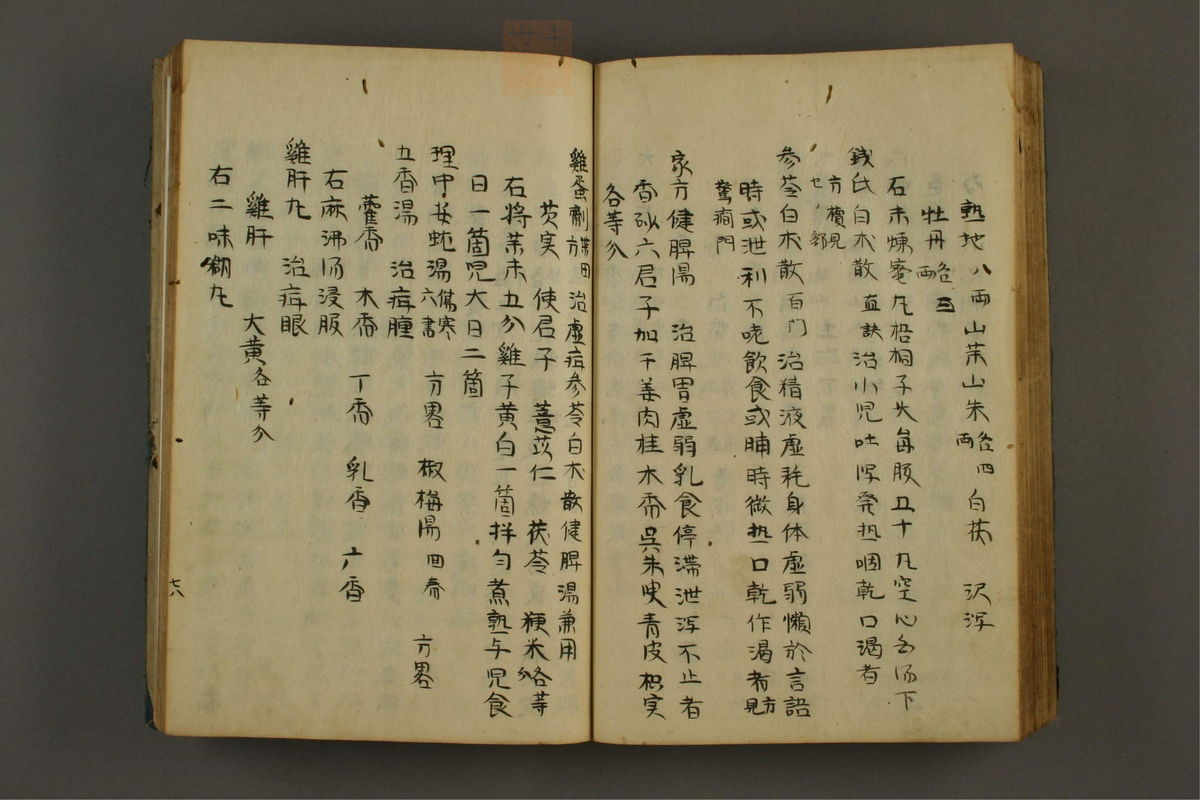 熟地八両 山茱 山朱各四両 白茯 沢浮
牡丹各三両
右末煉蜜丸梧桐子大毎服五十丸空心白汤下
銭氏白朮散 直訣 治小児吐浮発热咽乾口渇者
方横見
七ノ部
参苓白朮散 百门 治精液虚耗身体虚弱懶於言語
時或泄利不吃飲食或脯時微热口乾作渇者方見
驚癇門
家方健脾陽 治脾胃虚弱乳食停滞泄浮不止者
香砂六君子加干姜肉桂木香呉朱萸青皮枳実
各等分
雞蛋劑方 治虚疳参苓白朮散健脾湯兼用
芡実 使君子 薏苡仁 茯苓 粳米各等分
右将茱末五分雞子黄白一箇拌匀煮熟与児食
日一箇児大日二箇
理中安蚘湯 傷寒六書 方畧 椒梅湯 回春 方畧
五香湯 治疳腫
藿香 木香 丁香 乳香 六香
右麻沸汤浸服
雞肝丸 治疳眼
雞肝 大黄各等分
右二味糊丸
六